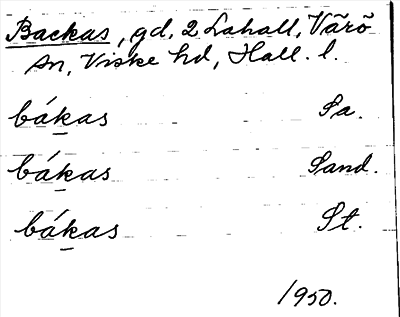 Backas, gd, 2 Lahall, Värö
sn, Viske hd, Hall. l.
bákas Sa.
bákas Sand.
bákas St.
1950.